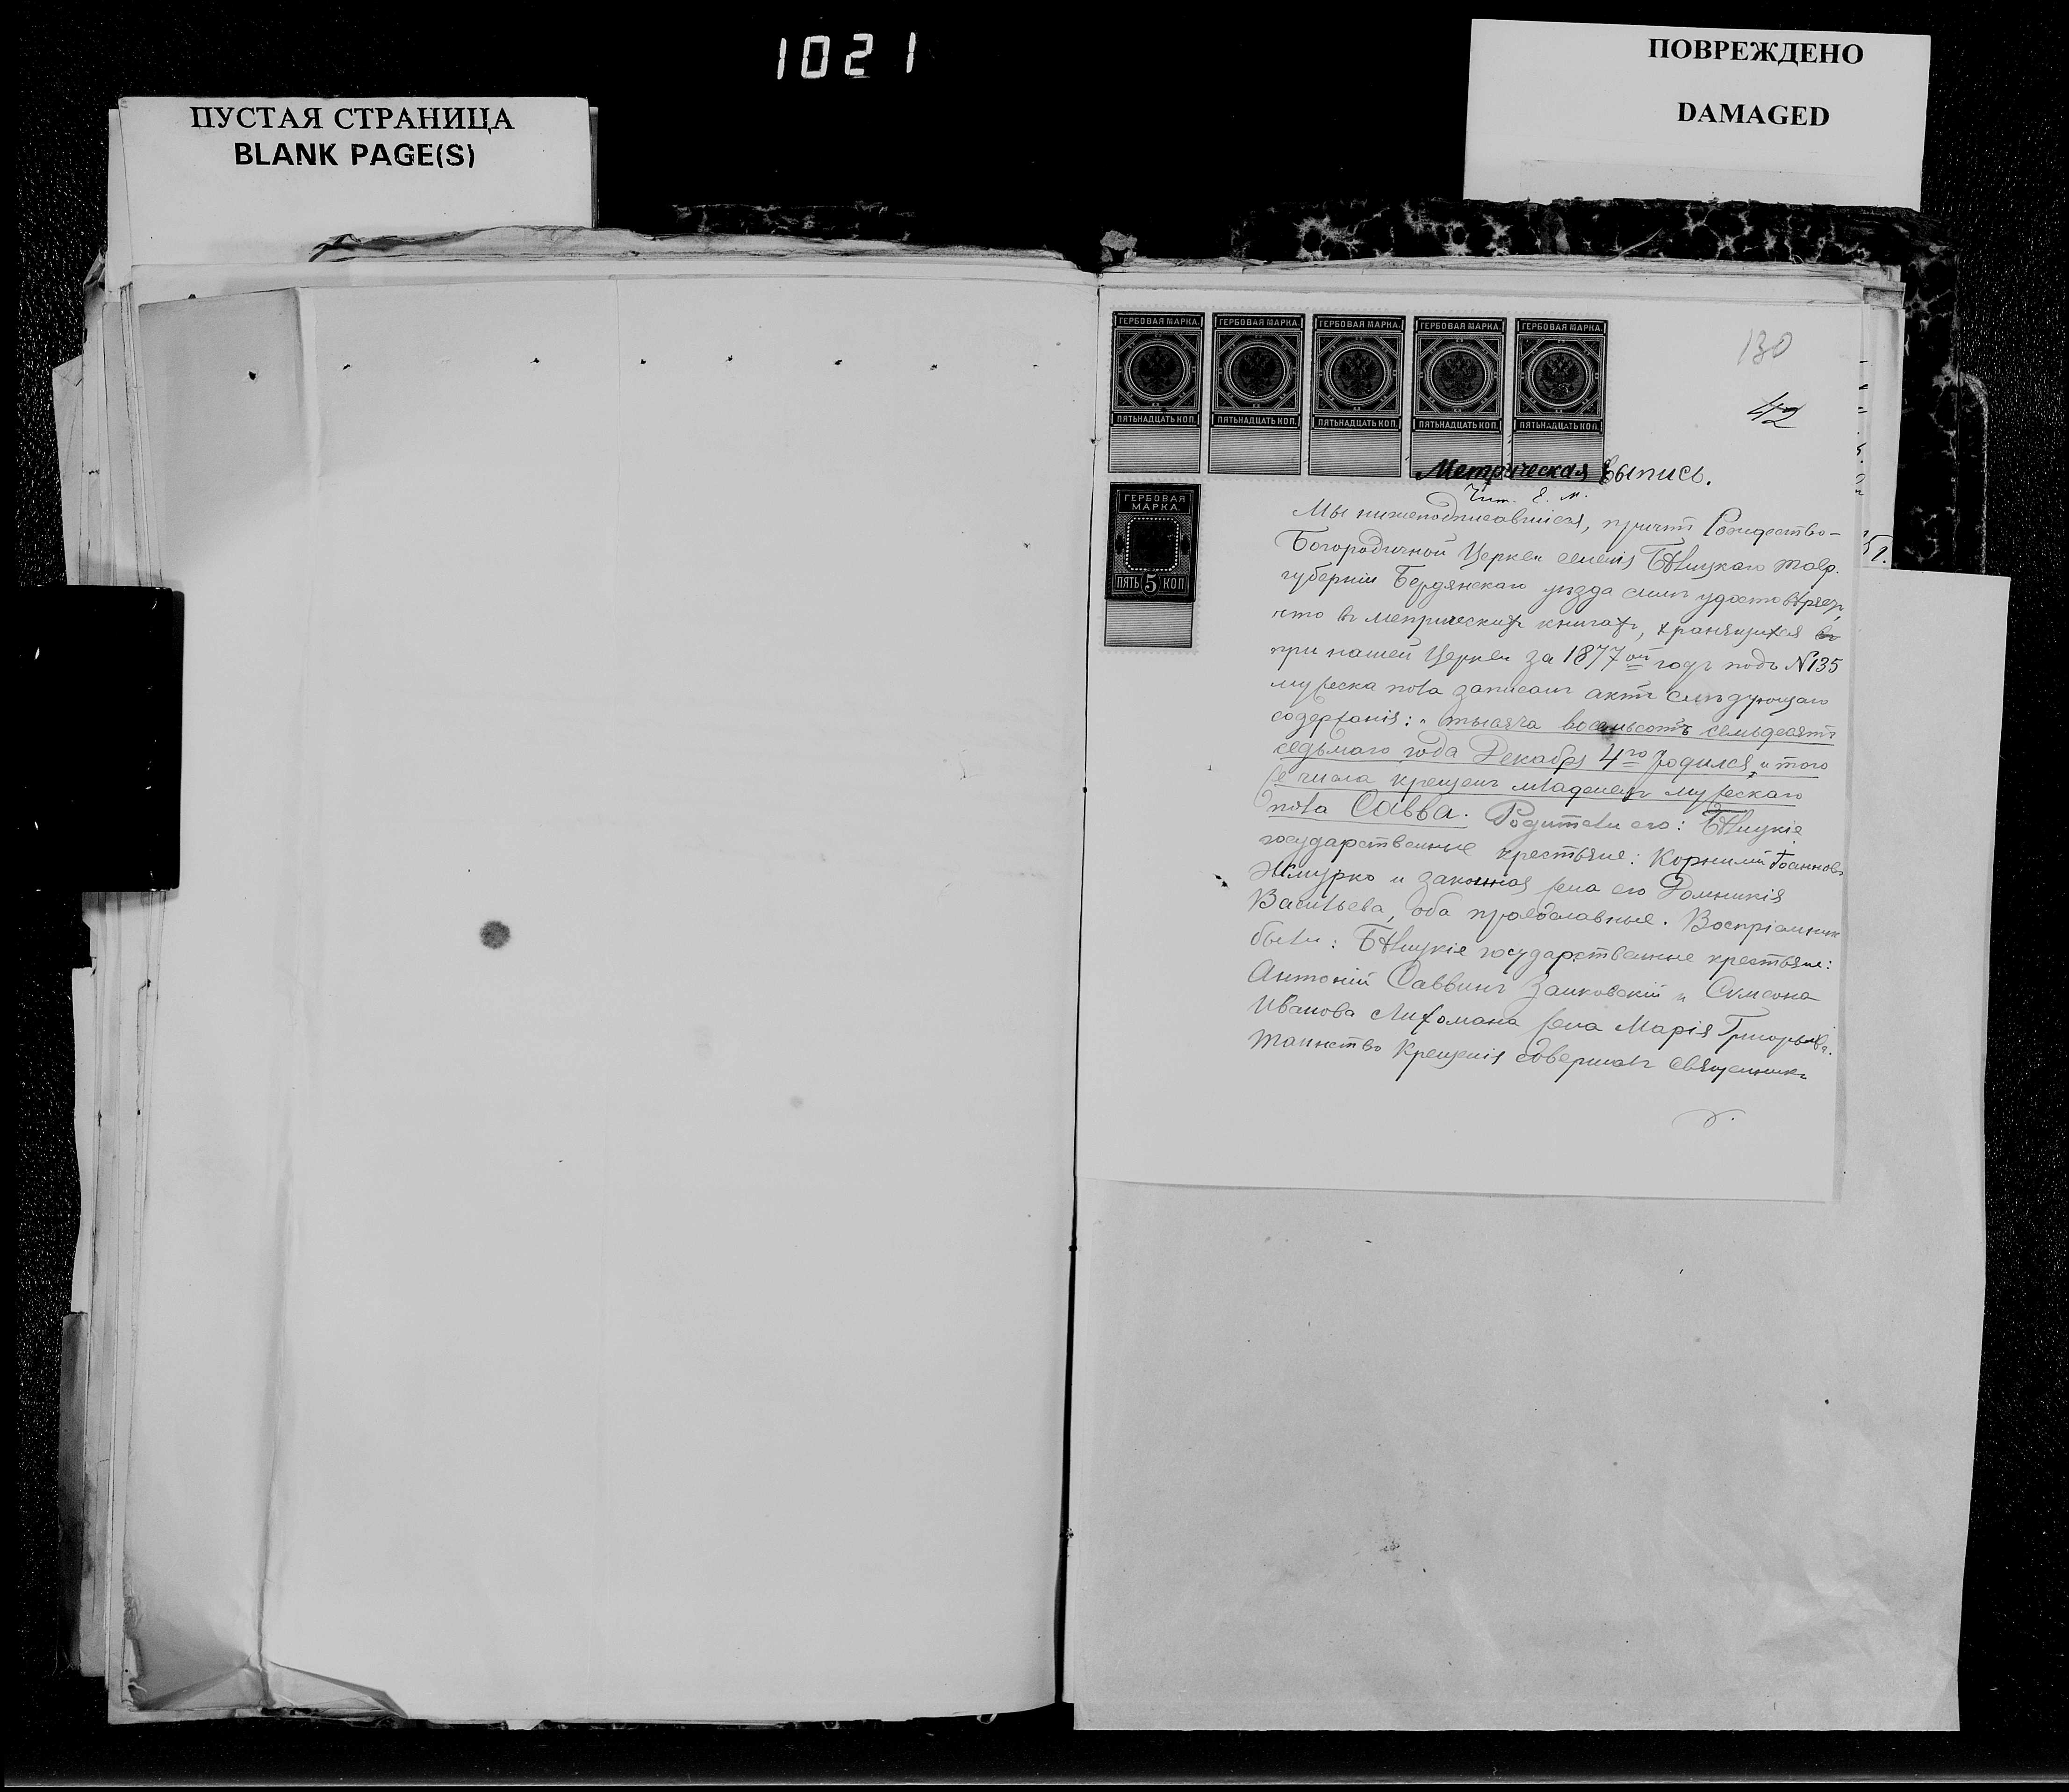 1021
ПУСТАЯ СТРАНИЦА
BLANK PAGE(S)
ПОВРЕЖДЕНО
DAMAGED
ГЕРБОВАЯ МАРКА. ГЕРБОВАЯ МАРКА. ГЕРБОВАЯ МАРКА. ГЕРБОВАЯ МАРКА. ГЕРБОВАЯ МАРКА.
ПЯТЬНАДЦАТЬ КОП. ПЯТЬНАДЦАТЬ КОП. ПЯТЬНАДЦАТЬ КОП. ПЯТЬНАДЦАТЬ КОП. ПЯТЬНАДЦАТЬ КОП.
130
42
ГЕРБОВАЯ
МАРКА.
ПЯТЬ 5 КОП
Метрическая Выпись.
Мы нижеподписавшіеся, причтъ Рождество-
Богородичной Церкви селенія Тавр.
губерніи Бердянскаго уѣзда симъ удостовѣряемъ,
что въ метрическихъ книгахъ, хранящихся
при нашей Церкви за 1877ой годъ подъ №135
мужеска пола записанъ актъ слѣдующаго
содержанія: „тысяча восемьсотъ семьдесятъ
седьмаго года Декабря 4го родился, и того
же числа крещенъ младенецъ мужескаго
пола Савва. Родители его:
государственные крестьяне: Корнилій Іоанновъ
Жмурко и законная жена его Домникія
Васильева, оба православные. Воспріемник
были: государственные крестьяне:
Антоній Саввинъ Заиковскій и Сумсона
Иванова Лихомана жена Марія Григорьева.
Таинство Крещенія совершалъ Священникъ